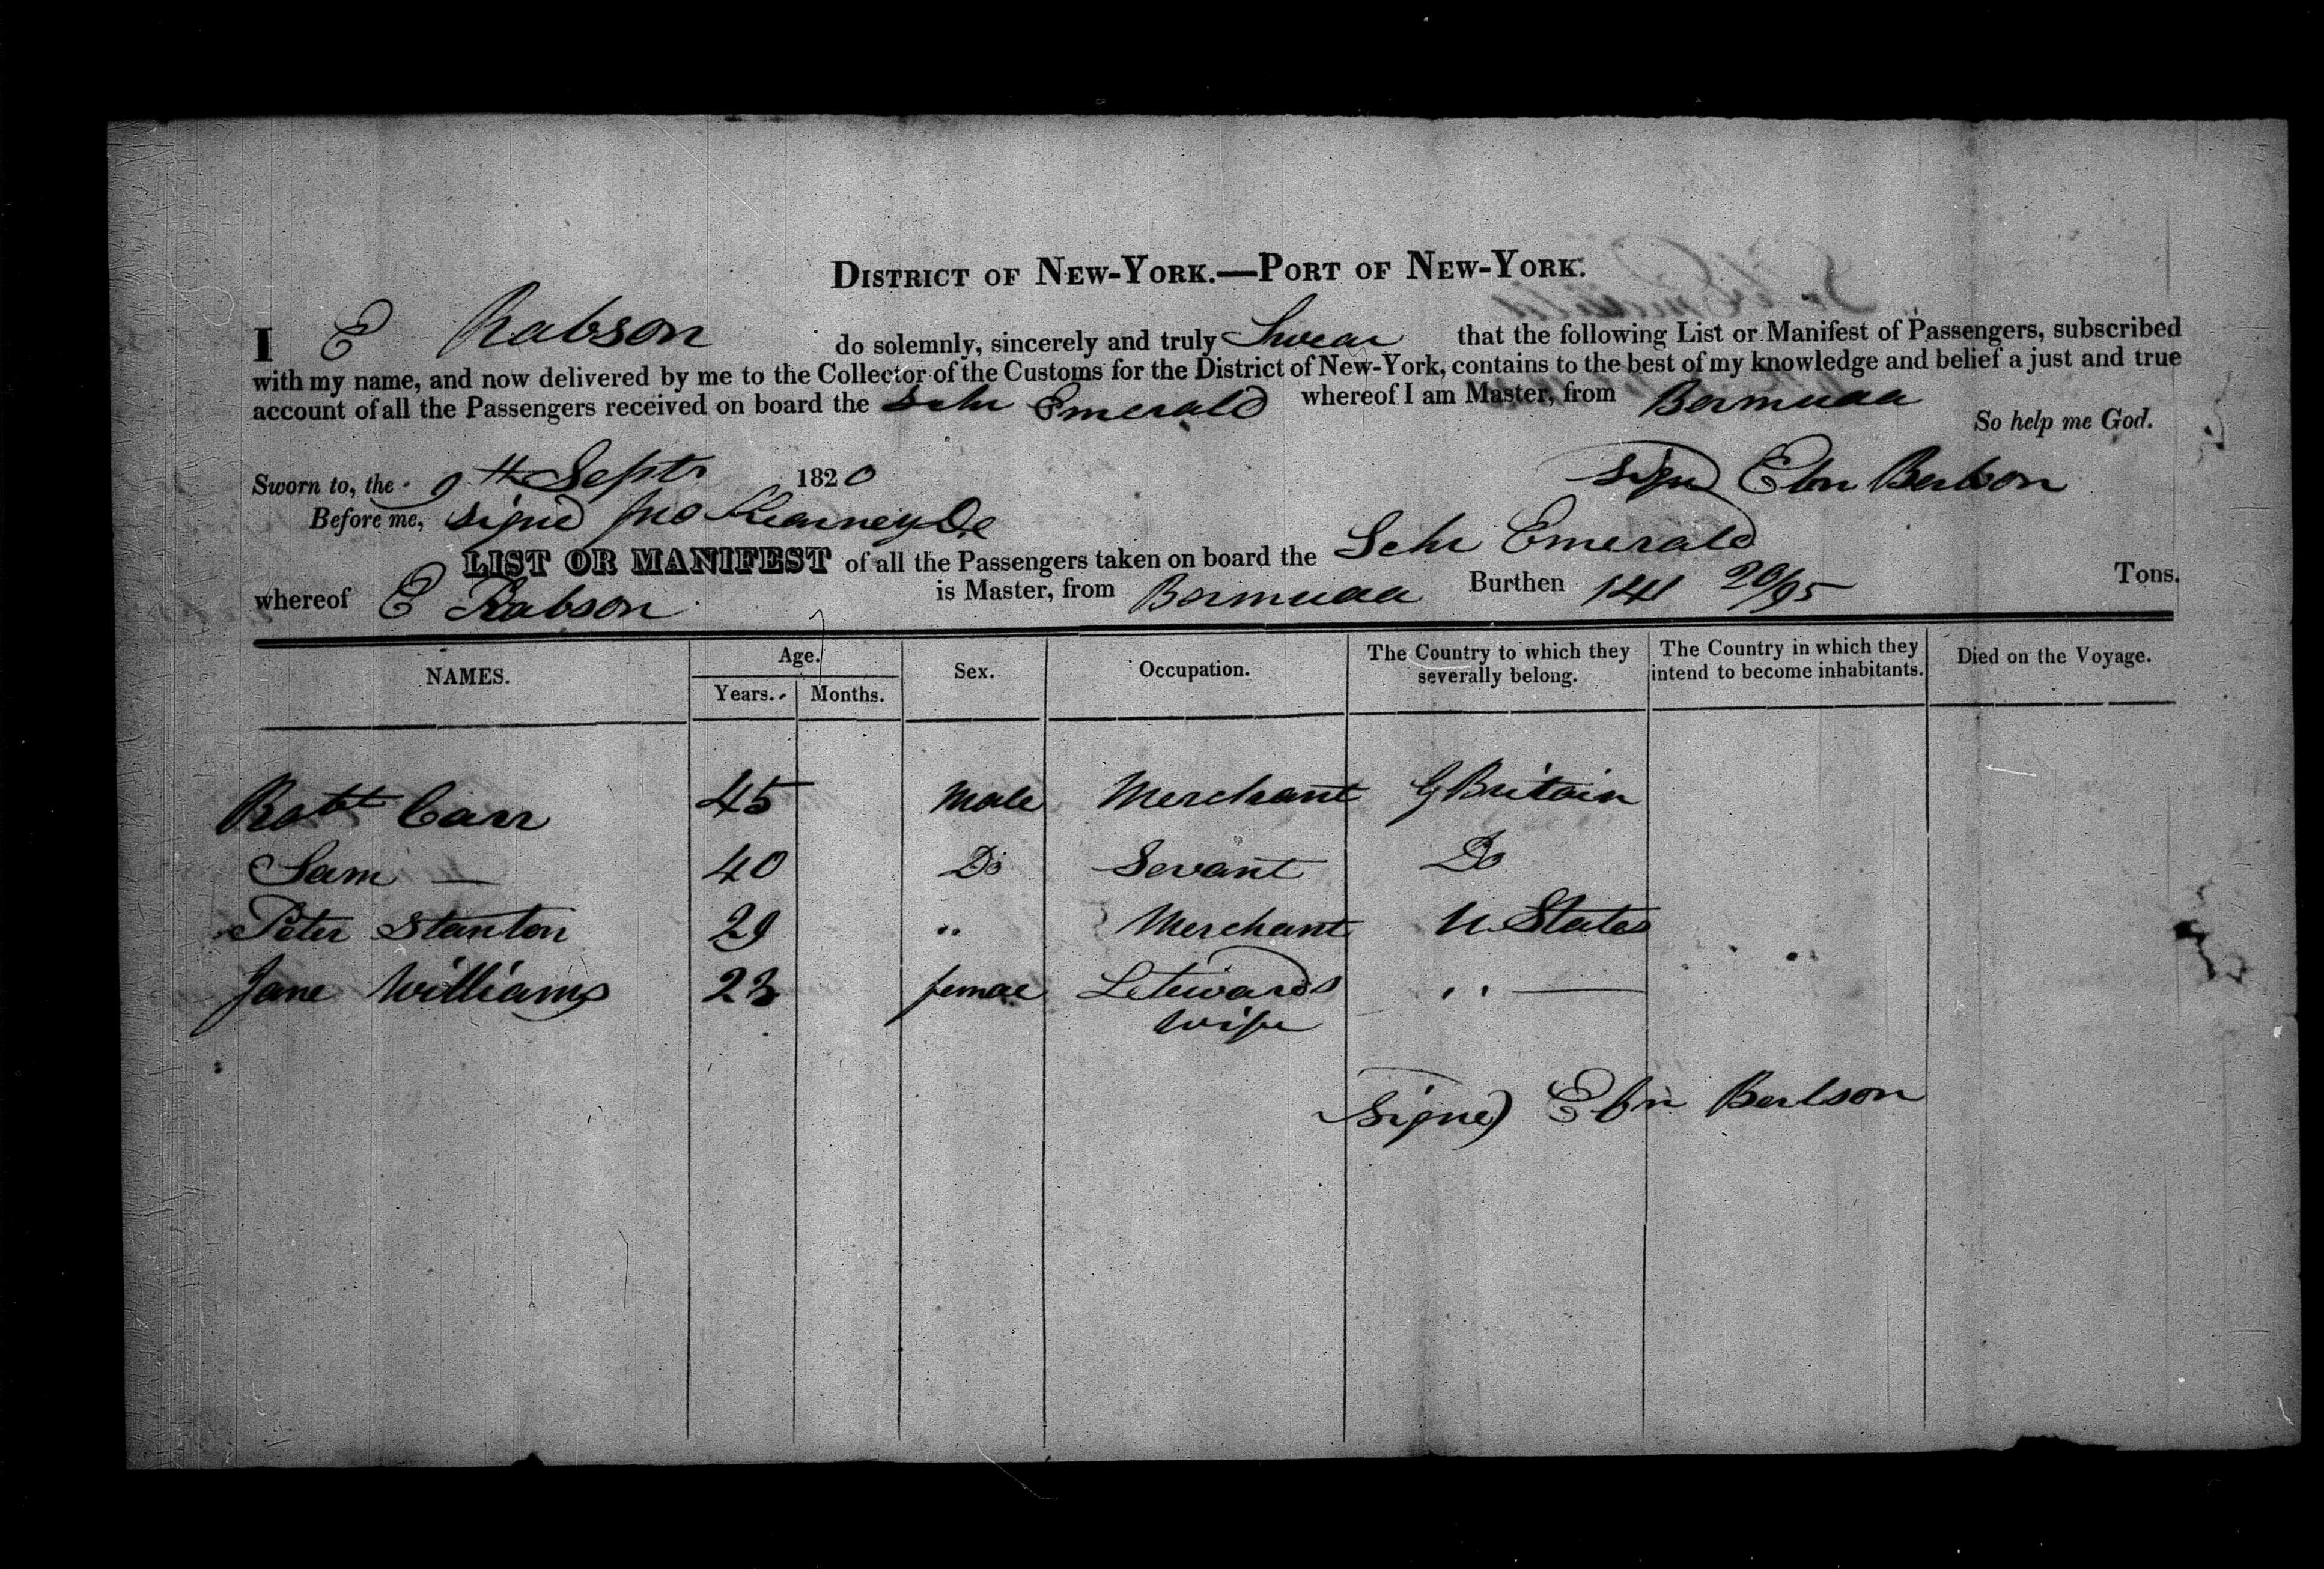 DISTRICT OF NEW-YORK.—PORT OF NEW-YORK.
I E Rabson do solemnly, sincerely and truly Swear that the following List or Manifest of Passengers, subscribed
with my name, and now delivered by me to the Collector of the Customs for the District of New-York, contains to the best of my knowledge and belief a just and true
account of all the Passengers received on board the Schr Emerald whereof I am Master, from Bermuda
So help me God.
Sworn to, the 9th Septr 1820 Signd Ebn Berlson
Before me, Signd Jno Kearney
LIST OR MANIFEST of all the Passengers taken on board the Schr Emerald
whereof E Rabson is Master, from Bermuda Burthen 141 20/95 Tons.
NAMES. Age. Sex. Occupation. The Country to which they severally belong. The Country in which they intend to become inhabitants. Died on the Voyage.
Years. Months.
Robt Carr 45 Male Merchant G Britain
Sam — 40 Do Servant Do
Peter Stanton 29 " Merchant U States
Jane Williams 23 femal Stewards " —
wife
Signed Ebn Berlson